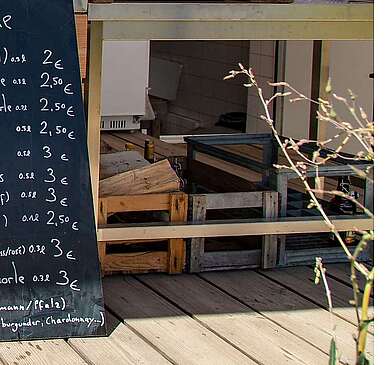 e
) 0.3l 2€
e 0.3l 2,50€
orle 0.3l 2,50€
0.5l 2,50€
0.5l 3€
s 0.3l 3€
f) 0.5l 3€
) 0.2l 2,50€
ss/rosé) 0.3l 3€
orle 0.3l 3€
mann/Pfalz)
burgunder, Chardonnay...)